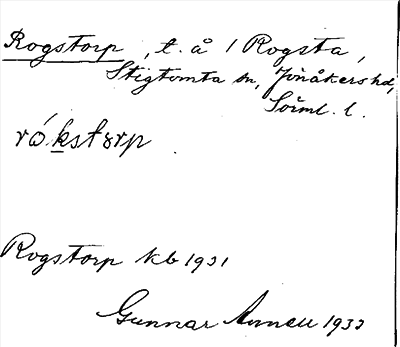 Rogstorp, t. å / Rogsta,
Stigtomta sn, Jönåkers hd,
Sörml. l.
rókstørp
Rogstorp kb 1931
Gunnar 1933